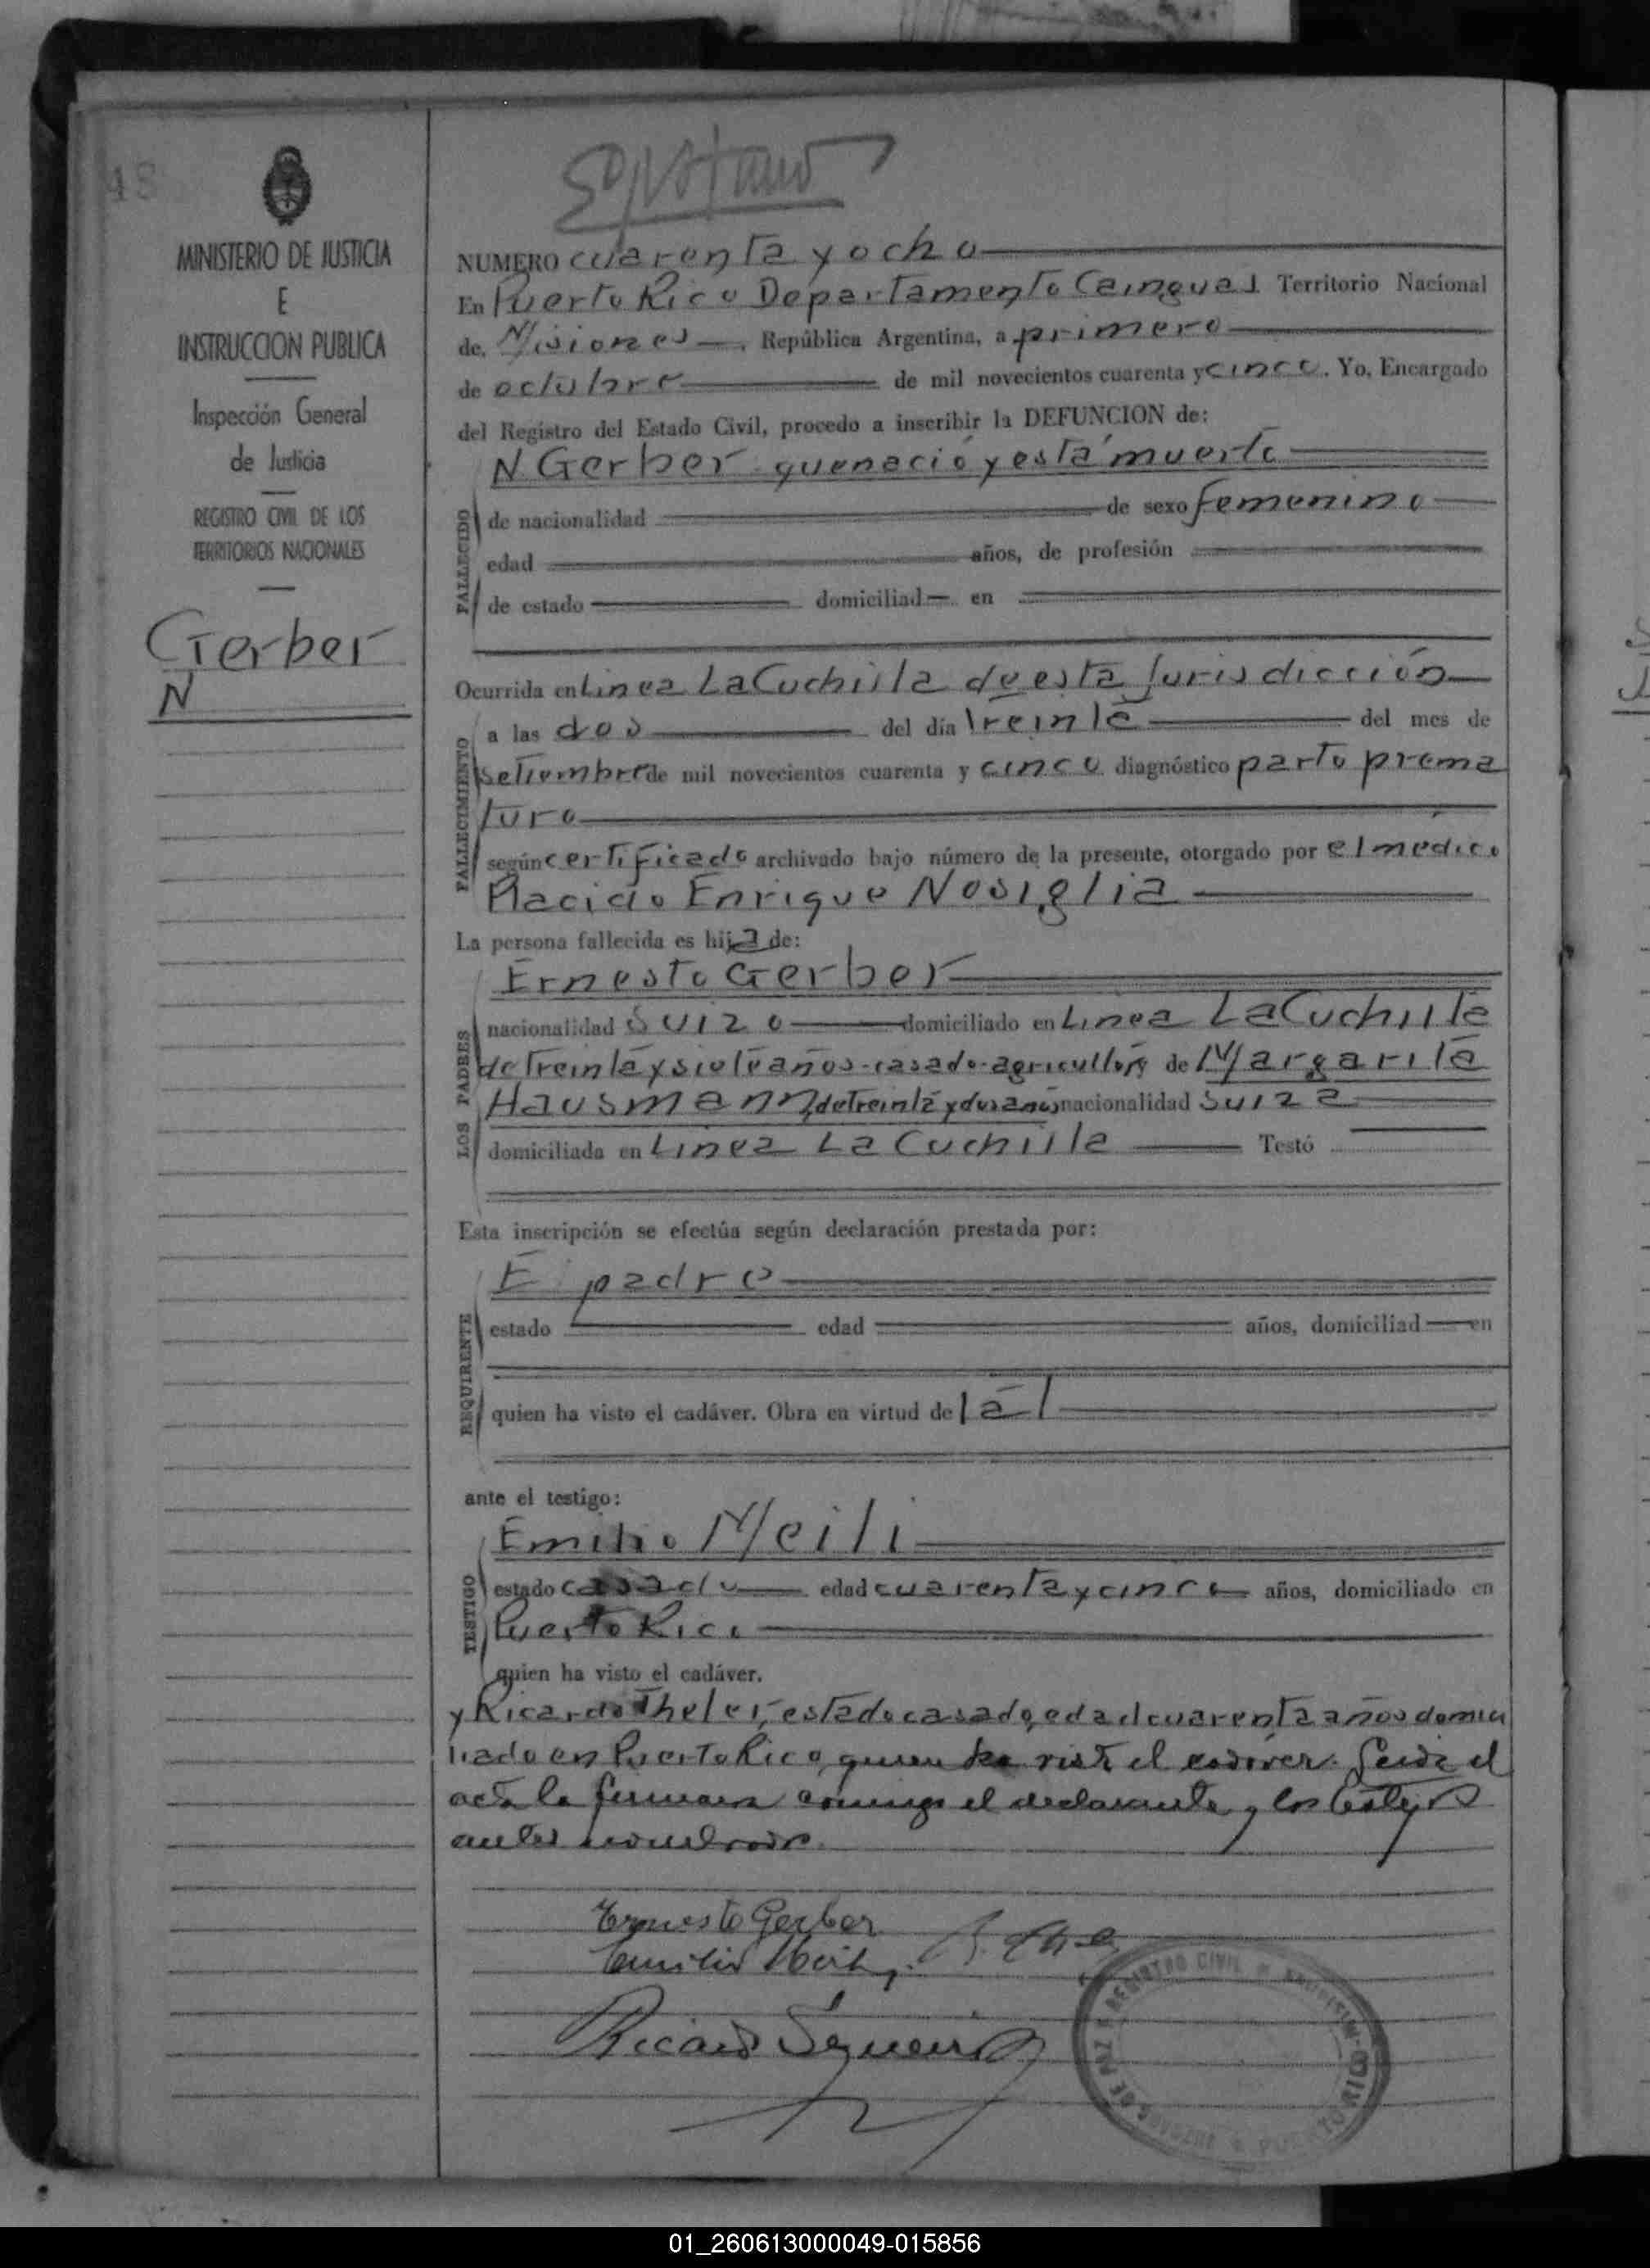 48
MINISTERIO DE JUSTICIA
E
INSTRUCCION PUBLICA
Inspección General
de Justicia
REGISTRO CIVIL DE LOS
TERRITORIOS NACIONALES
Gerber
N
NUMERO cuarenta y ocho
En Puerto Rico Departamento Cainguas Territorio Nacional
de Misiones, República Argentina, a primero
de octubre de mil novecientos cuarenta y cinco. Yo, Encargado
del Registro del Estado Civil, procedo a inscribir la DEFUNCION de:
N Gerber que nació y está muerto
FALLECIDO
de nacionalidad de sexo femenino
edad años, de profesión
de estado domiciliad en
Ocurrida en Linea La Cuchilla de esta Jurisdicción
FALLECIMIENTO
a las dos del día treinta del mes de
setiembre de mil novecientos cuarenta y cinco diagnóstico parto prema
turo
según certificado archivado bajo número de la presente, otorgado por el médico
Placido Enrique Nosiglia
La persona fallecida es hija de:
LOS PADRES
Ernesto Gerber
nacionalidad Suizo domiciliado en Linea La Cuchilla
de treinta y siete años-casado-agricultor y de Margarita
Hausmann, de treinta y dos años nacionalidad suiza
domiciliada en Linea La Cuchilla Testó
Esta inscripción se efectúa según declaración prestada por:
REQUIRENTE
El padre
estado edad años, domiciliad en
quien ha visto el cadáver. Obra en virtud de tal
ante el testigo:
TESTIGO
Emilio Meili
estado casado edad cuarenta y cinco años, domiciliado en
Puerto Rico
quien ha visto el cadáver.
y Ricardo Theler, estado casado, edad cuarenta años domici
liado en Puerto Rico, quien ha visto el cadáver. Leida el
acta la firmaron conmigo el declarante y los testigos
antes nombrados.
Ernesto Gerber
Emilio Meili
REGISTRO CIVIL
PUERTO RICO
01_260613000049-015856